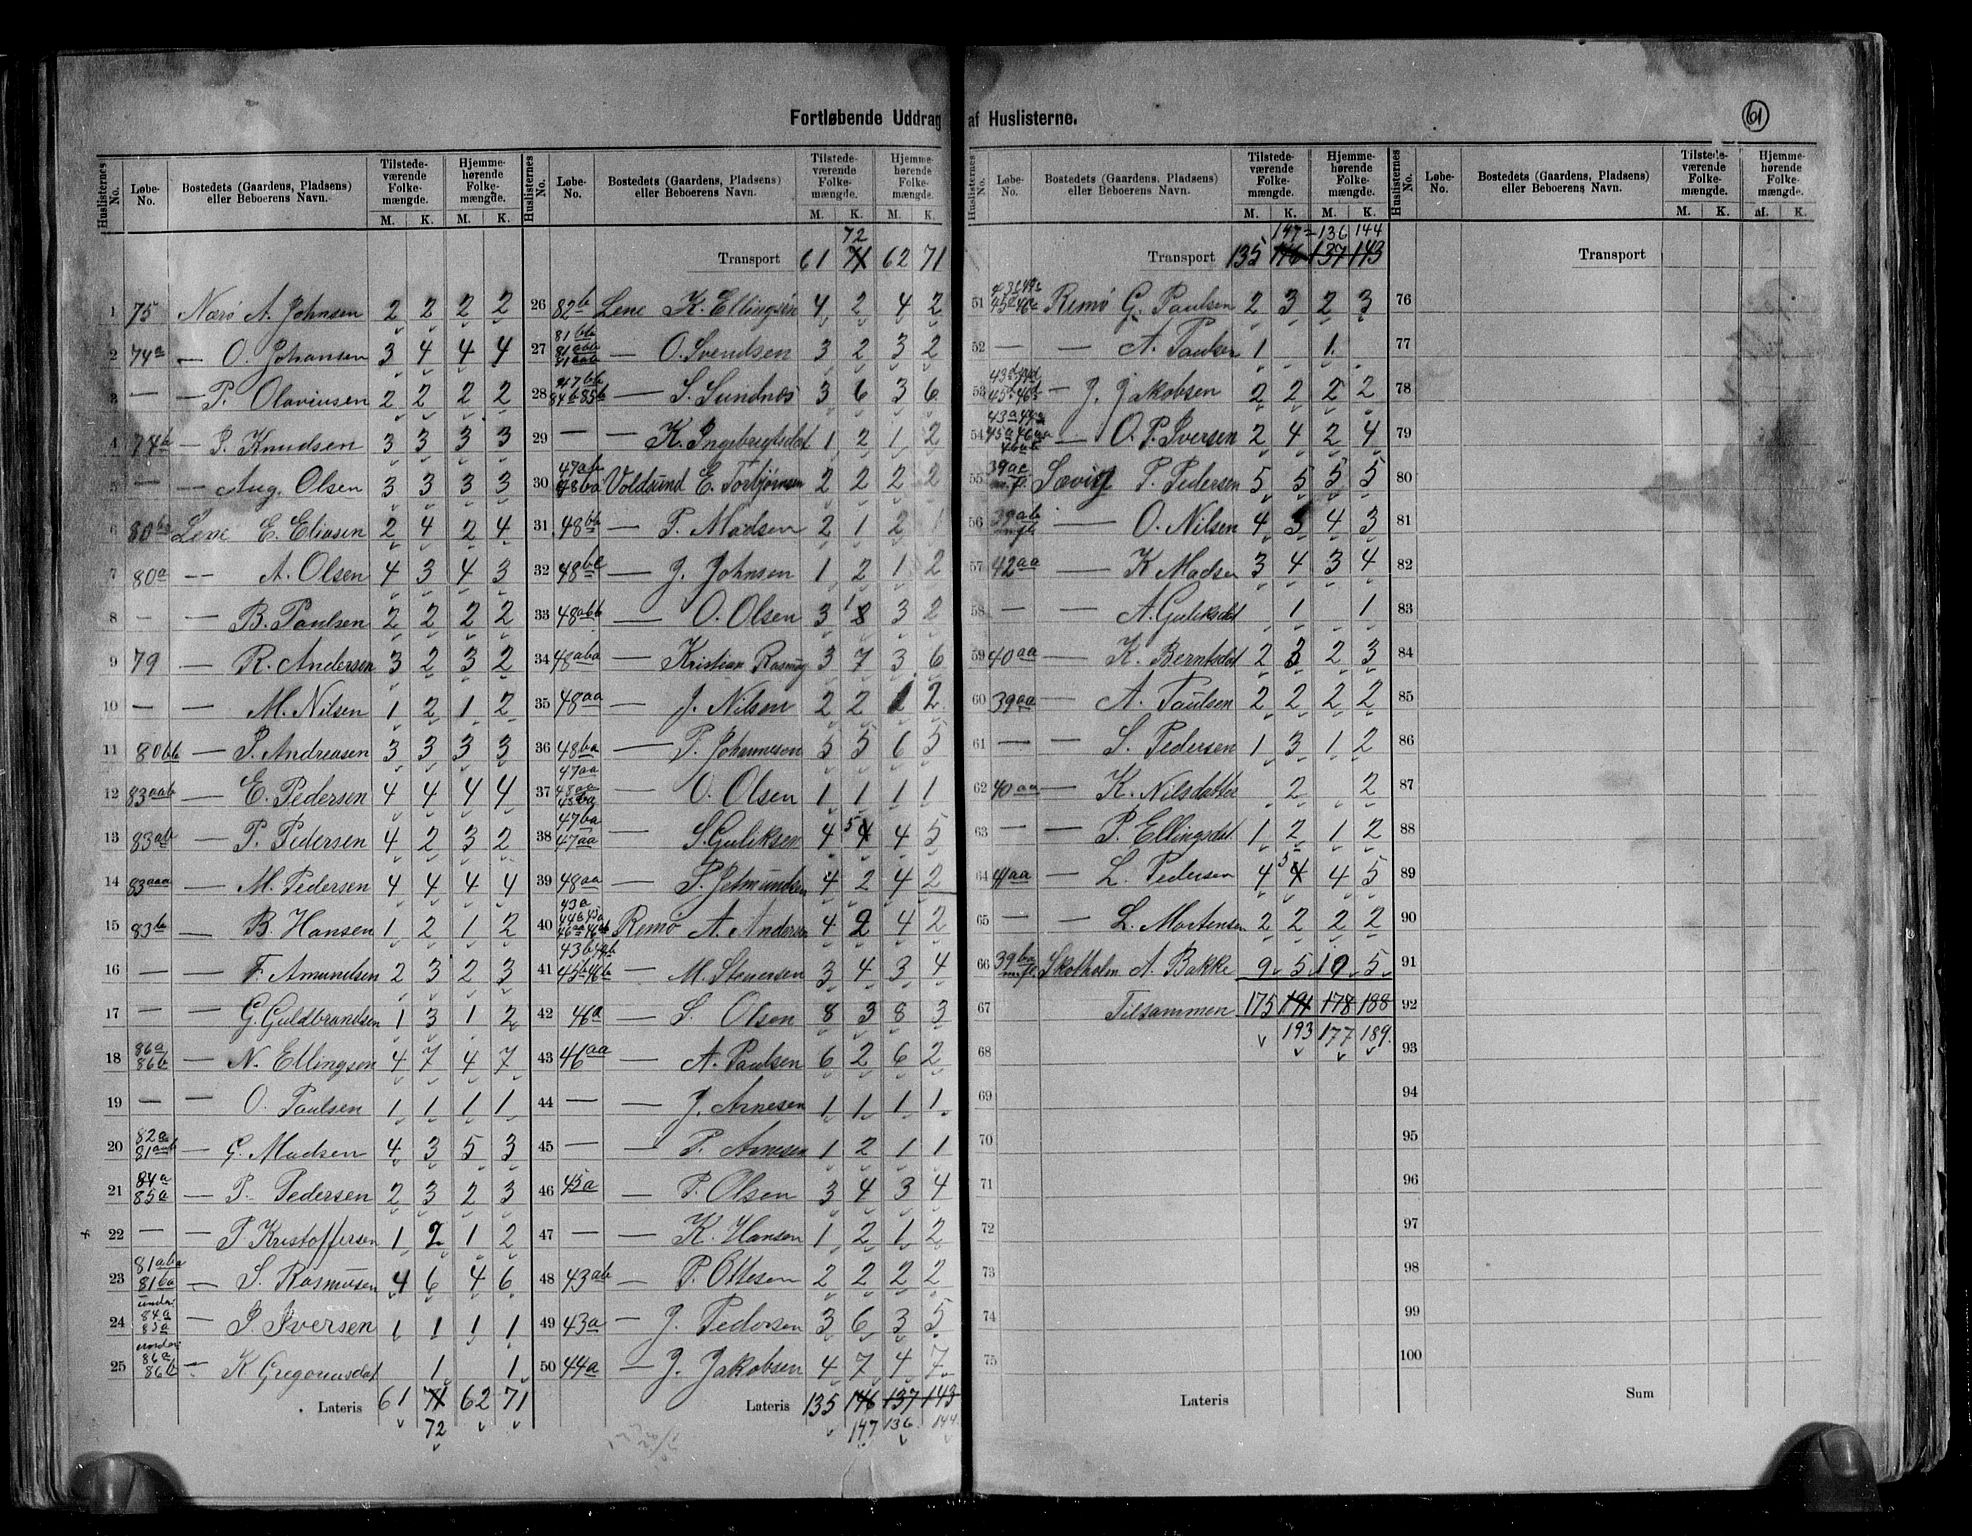 Fortløbende Uddrag af Huslisterne.
61
Huslisternes No. Løbe-No. Bostedets (Gaardens, Pladsens) eller Beboerens Navn. Tilstedeværende Folkemængde. M. K. Hjemmehørende Folkemængde. M. K.
1 75 Nærø A. Johnsen 2 2 2 2
2 74a — O. Johansen 3 4 4 4
3 — — P. Olaviusen 2 2 2 2
4 74b — P. Knudsen 3 3 3 3
5 — — Aug. Olsen 3 3 3 3
6 80ba Lene E. Eliasen 2 4 2 4
7 80a — A. Olsen 4 3 4 3
8 — — B. Paulsen 2 2 2 2
9 79 — R. Andersen 3 2 3 2
10 — — M. Nilsen 1 2 1 2
11 80bb — P. Andreasen 3 3 3 3
12 83aab — E. Pedersen 4 4 4 4
13 83ab — P. Pedersen 4 2 3 2
14 83aaa — M. Pedersen 4 4 4 4
15 83b — B. Hansen 1 2 1 2
16 — — F. Amundsen 2 3 2 3
17 — — G. Guldbrandsen 1 3 1 2
18 86a 86b — N. Ellingsen 4 7 4 7
19 — — O. Paulsen 1 1 1 1
20 82a 81aab — G. Madsen 4 3 5 3
21 84a 85a — P. Pedersen 2 3 2 3
22 — — P. Kristoffersen 1 2 1 2
23 81aba 81ba — S. Rasmusen 4 6 4 6
24 under 84a 85a — P. Iversen 1 1 1 1
25 under 86a 86b — K. Gregoriusdat 1 1
Lateris 61 71 62 71
72
72
Transport 61 71 62 71
26 82b Lene K. Ellingsen 4 2 4 2
27 81bb 81abb 81aab — O. Svendsen 3 2 3 2
28 47bb 84b 85b — S. Sundnæs 3 6 3 6
29 — — K. Ingebrigtsdat 1 2 1 2
30 47ab 48ba Voldsund E. Torbjørnsen 2 2 2 2
31 48bb — P. Madsen 2 1 2 1
32 48bc — J. Johnsen 1 2 1 2
33 48abb — O. Olsen 3 1 2 3 2
34 48aba — Kristian Rasmus 3 7 3 6
35 48aa — J. Nilsen 2 2 1 2
36 48ba — P. Johannesen 5 5 6 5
37 47aa 48aa 48ba — O. Olsen 1 1 1 1
38 47ba 47aa S. Guliksen 4 5 4 4 5
39 48aa — P. Jetmundsen 4 2 4 2
40 43a 44b 45a 46aa 46ab Remø A. Andersen 4 2 4 2
41 43b 44b 45b 46b — M. Steversen 3 4 3 4
42 46a — S. Olsen 8 3 8 3
43 46aa — A. Paulsen 6 2 6 2
44 — — J. Arnesen 1 1 1 1
45 — — P. Arnesen 1 2 1 1
46 45a — P. Olsen 3 4 3 4
47 — — K. Hansen 1 2 1 2
48 43ab — P. Ottesen 2 2 2 2
49 43a — J. Pedersen 3 6 3 5
50 44a — J. Jakobsen 4 7 4 7
Lateris 135 146 137 143
147 136 144
Huslisternes No. Løbe-No. Bostedets (Gaardens, Pladsens) eller Beboerens Navn. Tilstedeværende Folkemængde. M. K. Hjemmehørende Folkemængde. M. K.
147 136 144
Transport 135 146 137 143
51 Remø G. Paulsen 2 3 2 3
52 — — A. Paulsen 1 1
53 — J. Jakobsen 2 2 2 2
54 — O. P. Iversen 2 4 2 4
55 39ac m.fl. Sævig P. Pedersen 5 5 5 5
56 39ab m.fl. — O. Nilsen 4 3 4 3
57 42aa — K Madsen 3 4 3 4
58 — — A. Guliksdat 1 1
59 40aa — K. Berntsdat 2 3 2 3
60 39aa — A. Paulsen 2 2 2 2
61 — — S. Pedersen 1 3 1 2
62 40aa — K. Nilsdatter 2 2
63 — — P. Ellingsdat 1 2 1 2
64 41aa — L. Pedersen 4 5 4 4 5
65 — — L. Mortensen 2 2 2 2
66 39ba m.fl. Skotholm A. Bakke 9 5 10 5
67 Tilsammen 175 191 178 188
193 177 189
68
69
70
71
72
73
74
75
Lateris
Transport
76
77
78
79
80
81
82
83
84
85
86
87
88
89
90
91
92
93
94
95
96
97
98
99
100
Sum